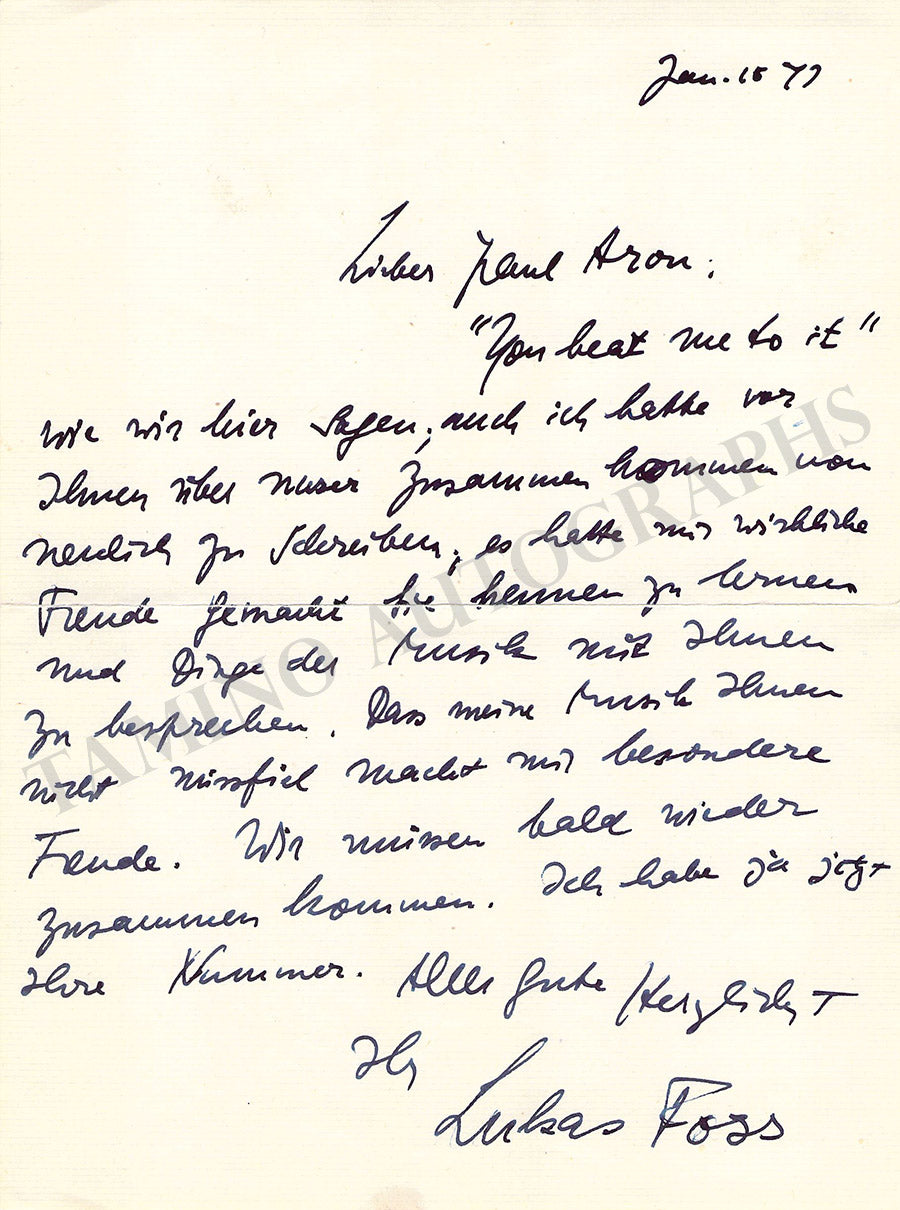 Jan. 15 71
Lieber Paul Aron:
"You beat me to it"
wie wir hier sagen, auch ich hatte vor
Ihnen über unser Zusammenkommen von
neulich zu schreiben; es hatte mir wirkliche
Freude gemacht Sie kennen zu lernen
und Dinge der Musik mit Ihnen
zu besprechen. Dass meine Musik Ihnen
nicht missfiel macht mir besondere
Freude. Wir müssen bald wieder
zusammen kommen. Ich habe ja jetzt
Ihre Nummer. Alles Gute Herzlichst
Ihr
Lukas Foss
TAMINO AUTOGRAPHS